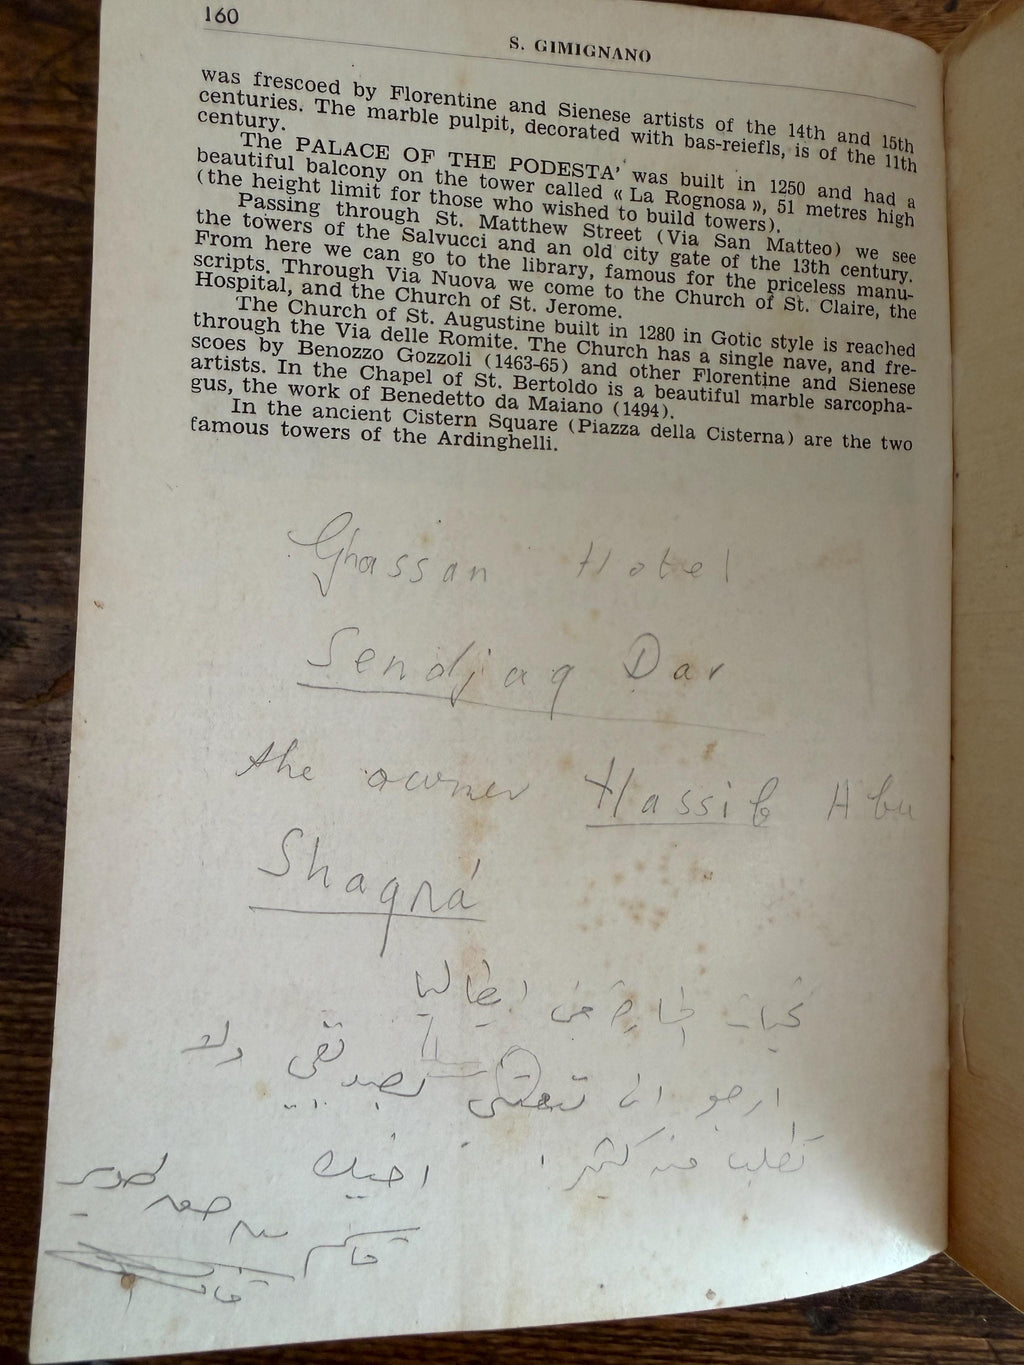 160
S. GIMIGNANO
was frescoed by Florentine and Sienese artists of the 14th and 15th
centuries. The marble pulpit, decorated with bas-reiefls, is of the 11th
century.
The PALACE OF THE PODESTA' was built in 1250 and had a
beautiful balcony on the tower called « La Rognosa », 51 metres high
(the height limit for those who wished to build towers).
Passing through St. Matthew Street (Via San Matteo) we see
the towers of the Salvucci and an old city gate of the 13th century.
From here we can go to the library, famous for the priceless manu-
scripts. Through Via Nuova we come to the Church of St. Claire, the
Hospital, and the Church of St. Jerome.
The Church of St. Augustine built in 1280 in Gotic style is reached
through the Via delle Romite. The Church has a single nave, and fre-
scoes by Benozzo Gozzoli (1463-65) and other Florentine and Sienese
artists. In the Chapel of St. Bertoldo is a beautiful marble sarcopha-
gus, the work of Benedetto da Maiano (1494).
In the ancient Cistern Square (Piazza della Cisterna) are the two
famous towers of the Ardinghelli.
Ghassan Hotel
Sendjaq Dar
the owner Hassib Abu
Shaqrá
تحيات من ايطاليا
ارجو ان بصديقي ولا
تطلب منه كثير